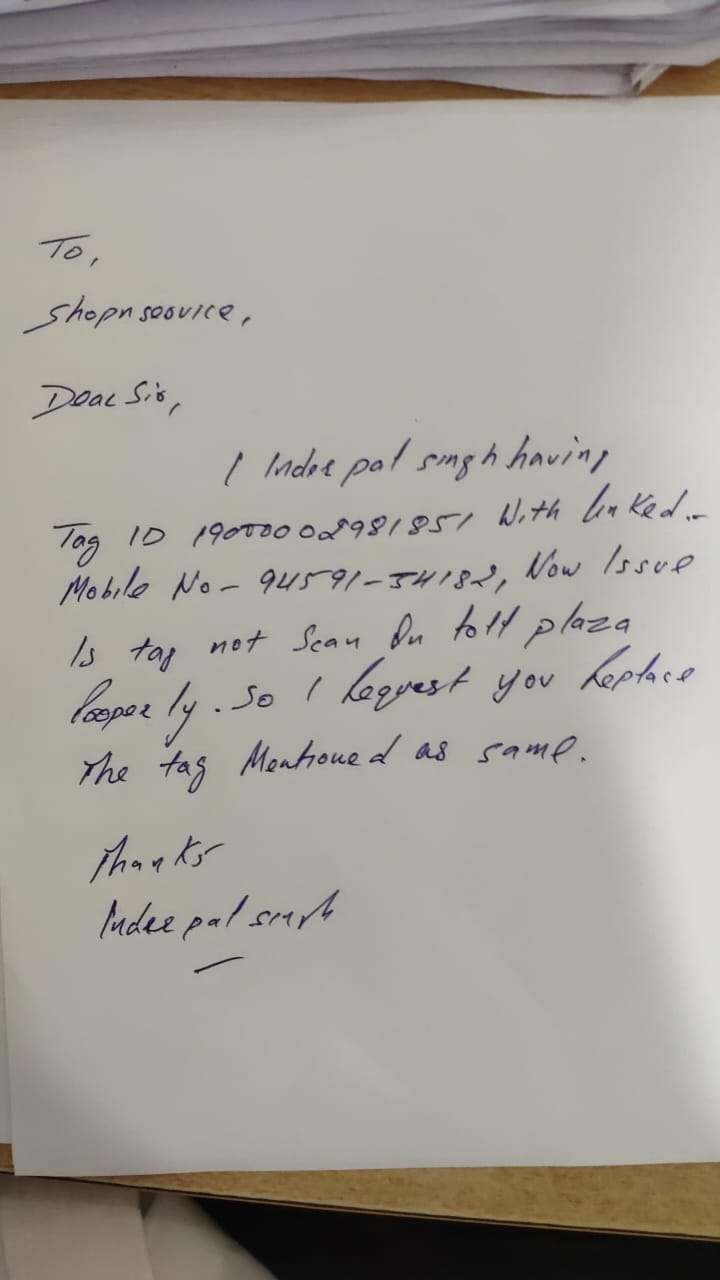 To,
Shopnservice,
Dear Sir,
I Inder pal singh having
Tag ID 19000002981851 With linked.-
Mobile No - 94591-34182, Now Issue
Is tag not Scan On toll plaza
Properly. So I Request you Replace
The tag Mentioned as same.
Thanks
Inder pal singh